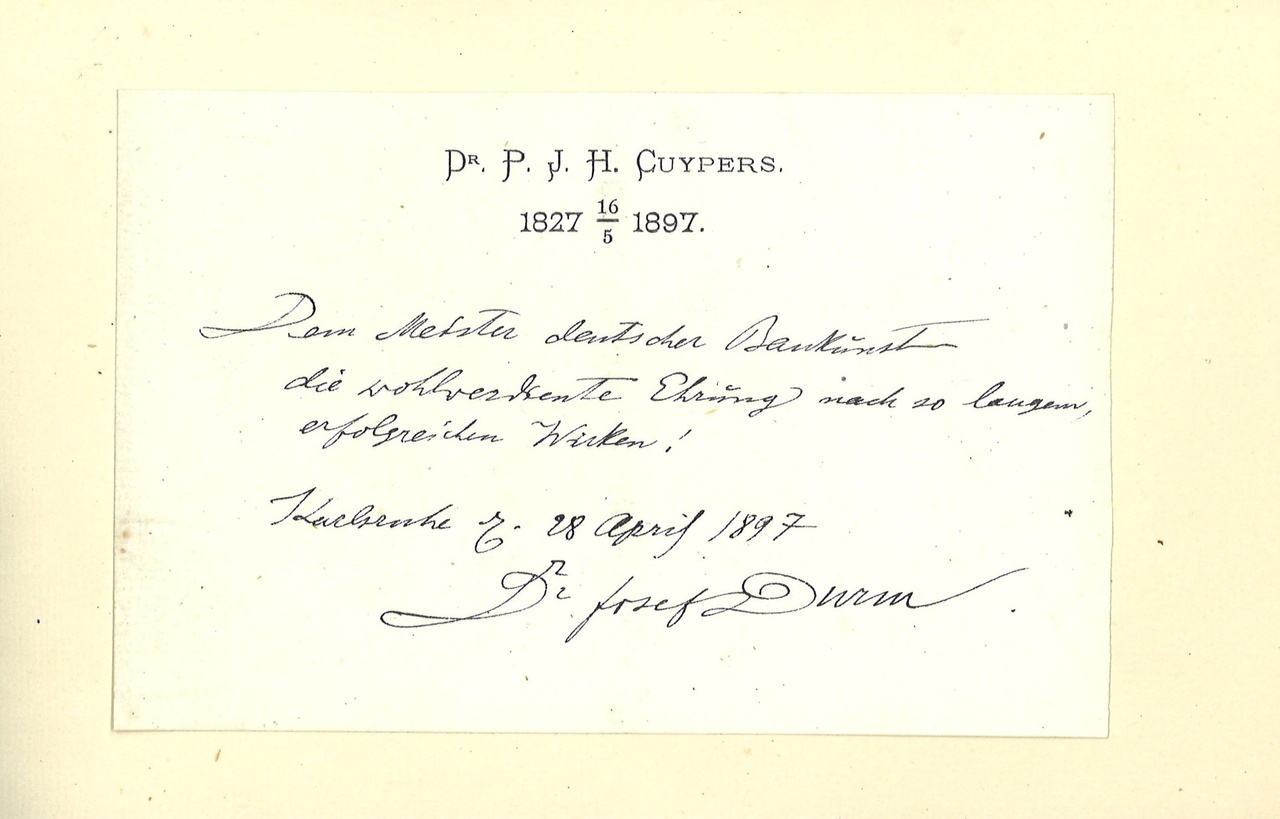 Dr. P. J. H. Cuypers.
1827 16/5 1897.
Dem Meister deutscher Baukunst
die wohlverdiente Ehrung nach so langem,
erfolgreichen Wirken!
Karlsruhe 28 April 1897
Dr Josef Durm